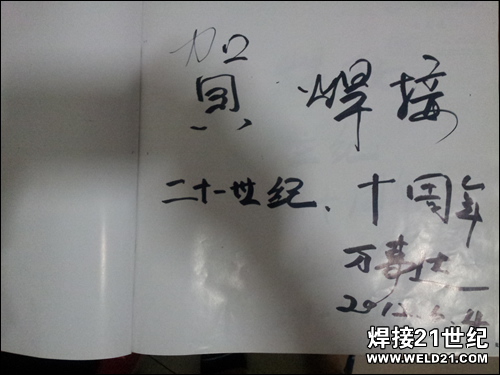 贺 焊接
二十一世纪、十周年
2012.
焊接21世纪
WWW.WELD21.COM